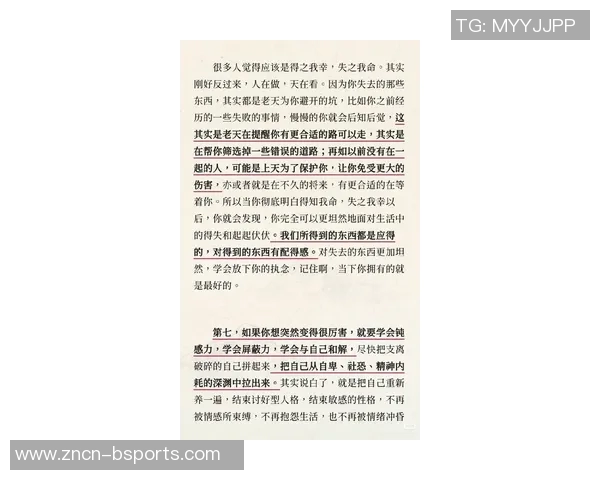 TG: MYYJJPP
很多人觉得应该是得之我幸，失之我命。其实
刚好反过来，人在做，天在看。因为你失去的那些
东西，其实都是老天为你避开的坑，比如你之前经
历的一些失败的事情，慢慢的你就会后知后觉，这
其实是老天在提醒你有更合适的路可以走，其实是
在帮你筛选掉一些错误的道路；再如以前没有在一
起的人，可能是上天为了保护你，让你免受更大的
伤害，亦或者就是在不久的将来，有更合适的在等
着你。所以当你彻底明白得知我命，失之我幸以
后，你就会发现，你完全可以更坦然地面对生活中
的得失和起起伏伏。我们所得到的东西都是应得
的，对得到的东西有配得感。对失去的东西更加坦
然，学会放下你的执念，记住啊，当下你拥有的就
是最好的。
第七，如果你想突然变得很厉害，就要学会钝
感力，学会屏蔽力，学会与自己和解，尽快把支离
破碎的自己拼起来，把自己从自卑、社恐、精神内
耗的深渊中拉出来。其实说白了，就是把自己重新
养一遍，结束讨好型人格，结束敏感的性格，不再
被情感所束缚，不再抱怨生活，也不再被情绪冲昏
www.zncn-bsports.com